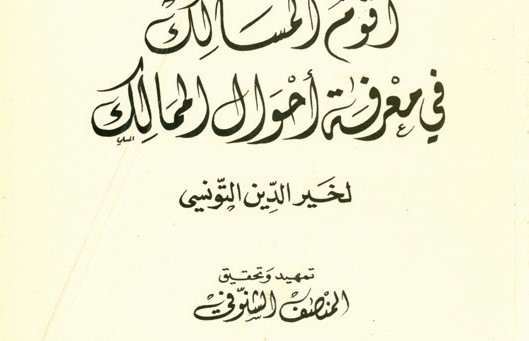 أقوم المسالك
في معرفة أحوال الممالك
لخير الدين التونسي
تمهيد وتحقيق
المنصف الشنوفي